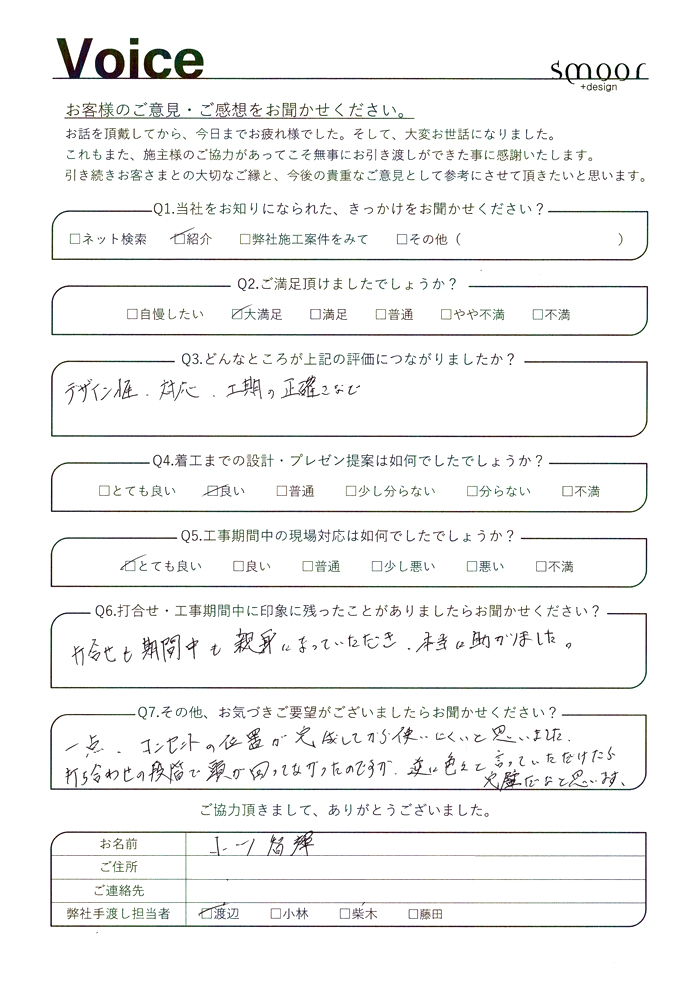 Voice
smoor
+design
お客様のご意見・ご感想をお聞かせください。
お話を頂戴してから、今日までお疲れ様でした。そして、大変お世話になりました。
これもまた、施主様のご協力があってこそ無事にお引き渡しができた事に感謝いたします。
引き続きお客さまとの大切なご縁と、今後の貴重なご意見として参考にさせて頂きたいと思います。
Q1.当社をお知りになられた、きっかけをお聞かせください?
□ネット検索 ☑紹介 □弊社施工案件をみて □その他( )
Q2.ご満足頂けましたでしょうか?
□自慢したい ☑大満足 □満足 □普通 □やや不満 □不満
Q3.どんなところが上記の評価につながりましたか?
デザイン性、対応、工期の正確さなど
Q4.着工までの設計・プレゼン提案は如何でしたでしょうか?
□とても良い ☑良い □普通 □少し分らない □分らない □不満
Q5.工事期間中の現場対応は如何でしたでしょうか?
☑とても良い □良い □普通 □少し悪い □悪い □不満
Q6.打合せ・工事期間中に印象に残ったことがありましたらお聞かせください?
打合せも期間中も親身になっていただき、本当に助かりました。
Q7.その他、お気づきご要望がございましたらお聞かせください?
一点、コンセントの位置が完成してから使いにくいと思いました。
打ち合わせの段階で頭が回ってなかったのですが、逆に色々と言っていただけたら
完璧だなと思います。
ご協力頂きまして、ありがとうございました。
お名前 智輝
ご住所
ご連絡先
弊社手渡し担当者 ☑渡辺 □小林 □柴木 □藤田